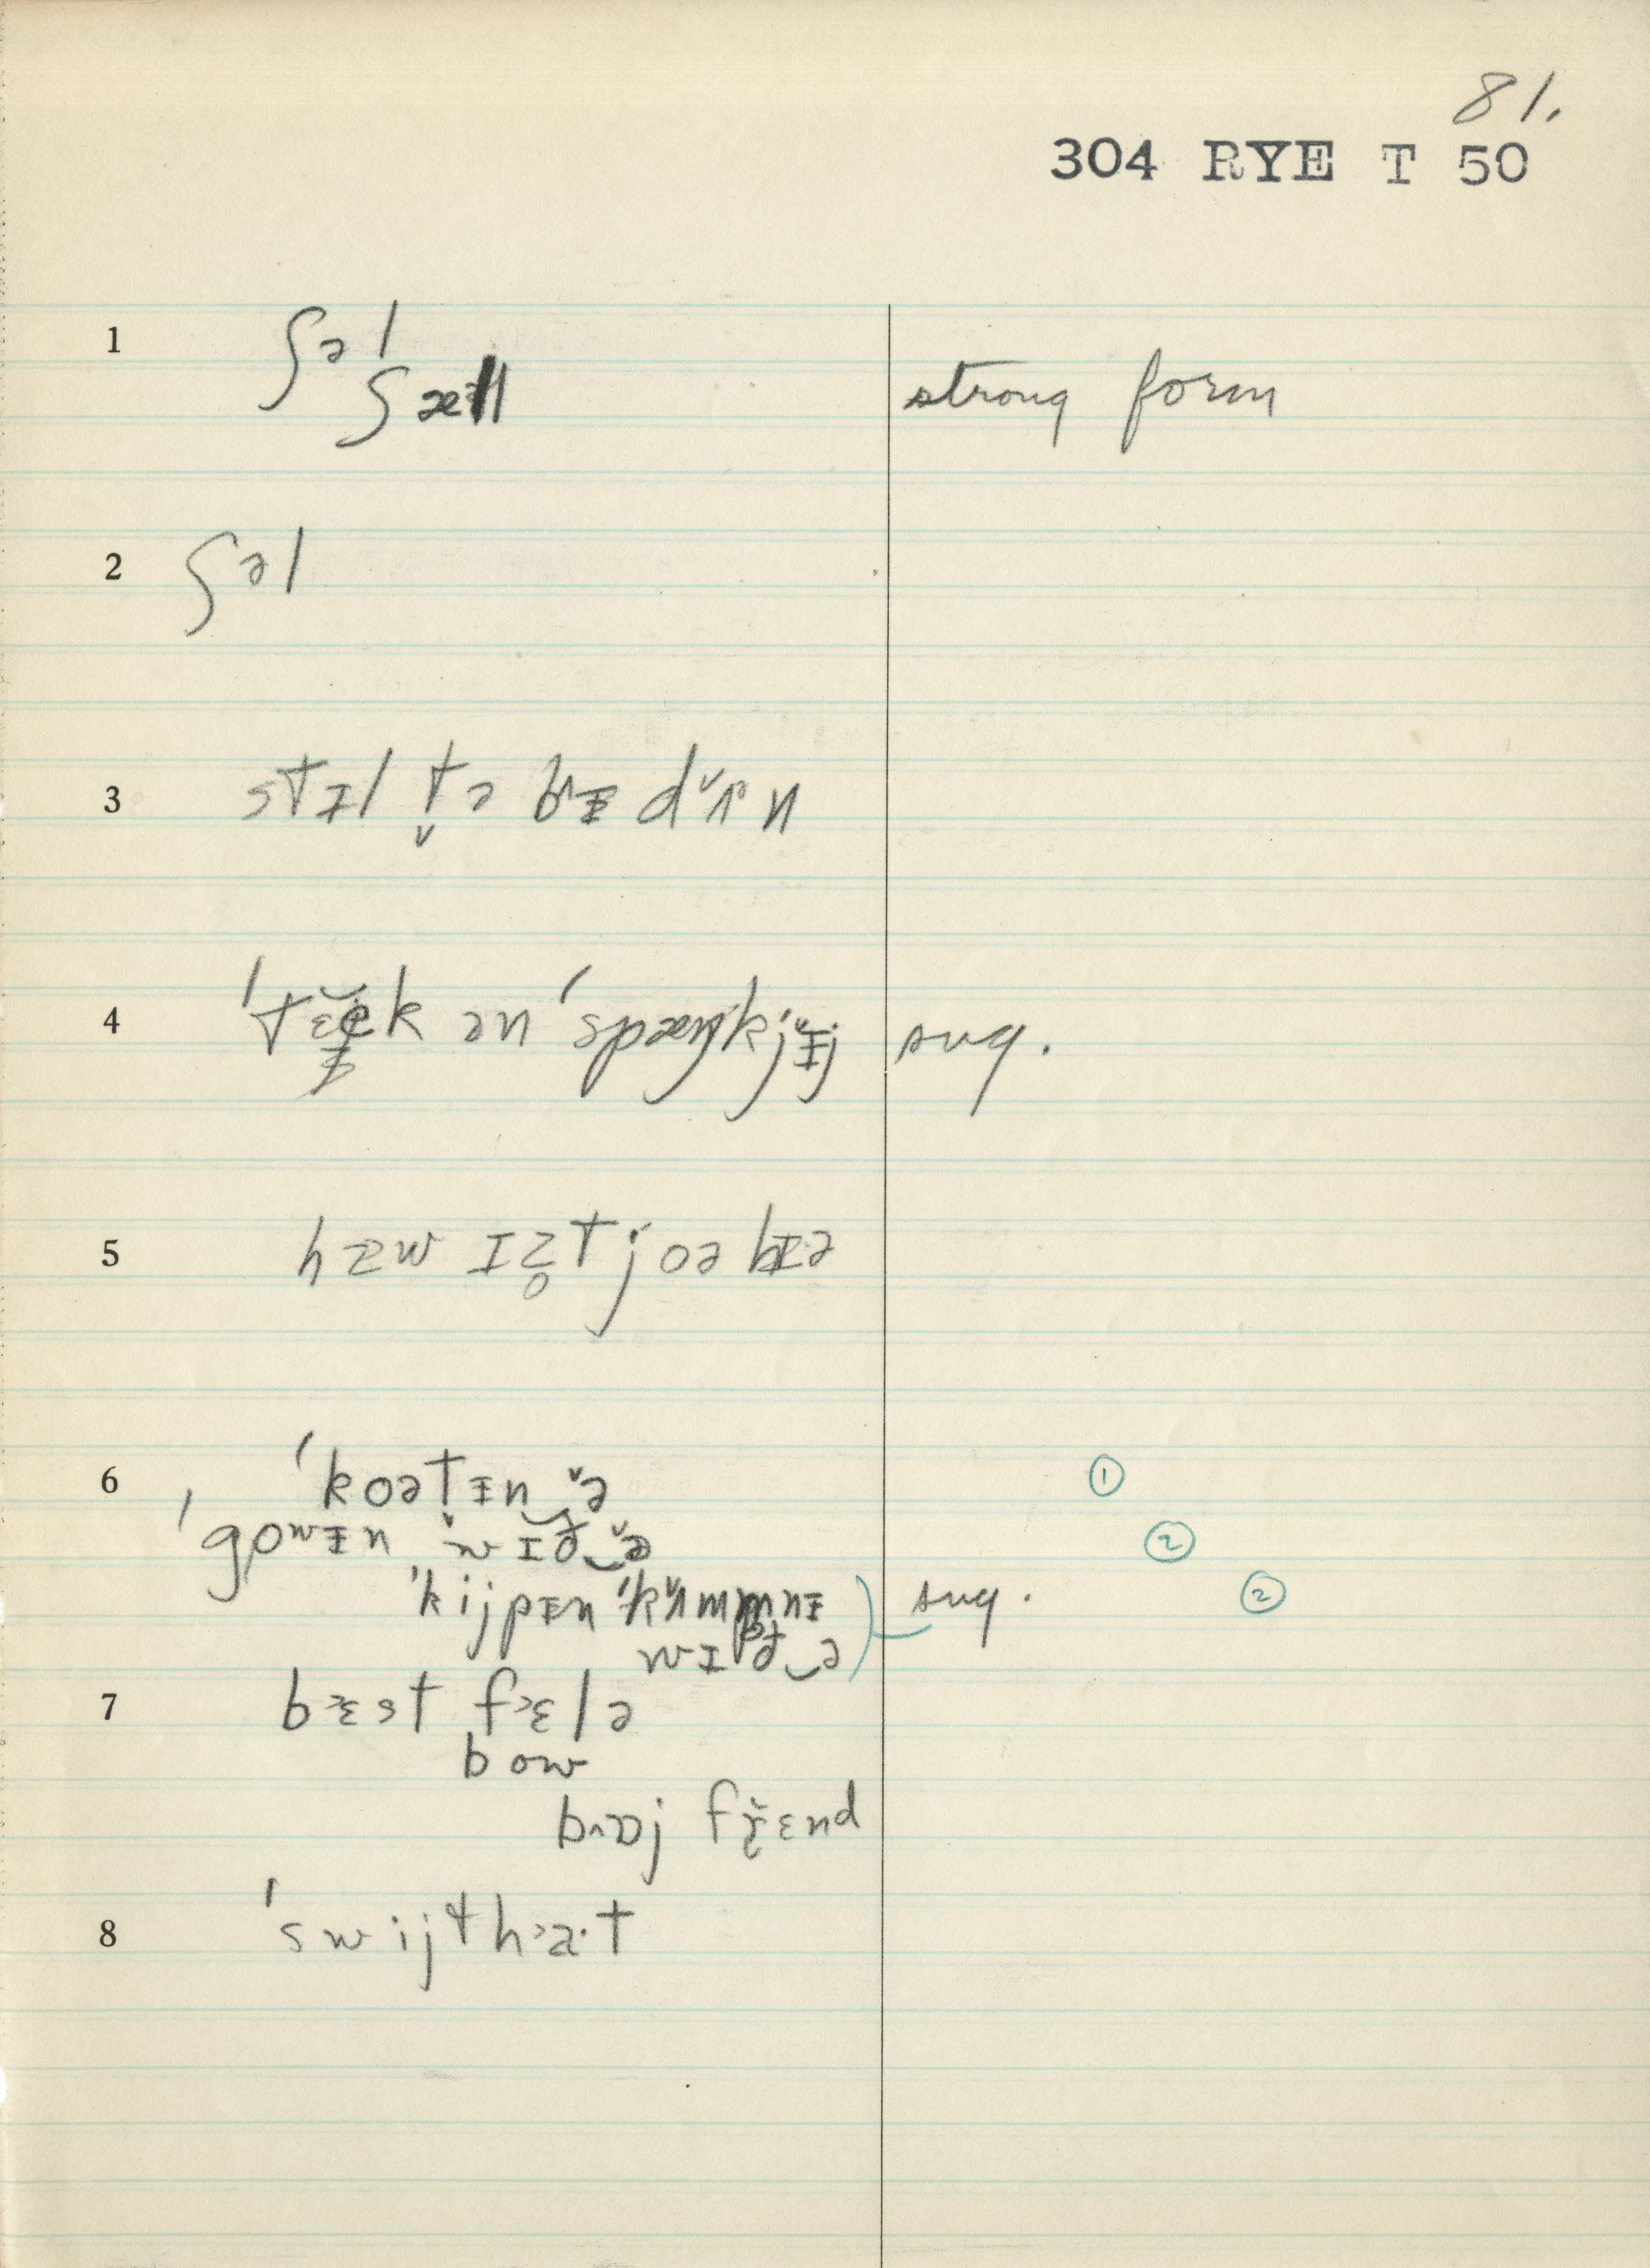 81.
304 RYE T 50
1 ʃəl
ʃæl strong form
2 ʃəl
3 stɪl tə̬ bɪ dʌn
4 ən sug.
5 hæw ɪz̥t j oə bɪə
6 ˈkoətɪn‿ə ①
ˈgowɪn wɪð‿ə ②
ˈkijpɪn ˈkʌmpnɪ sug. ②
wɪð‿ə
7 bɛst fɛlə
bow
bɒj frɛnd
8 ˈswijthaˑt